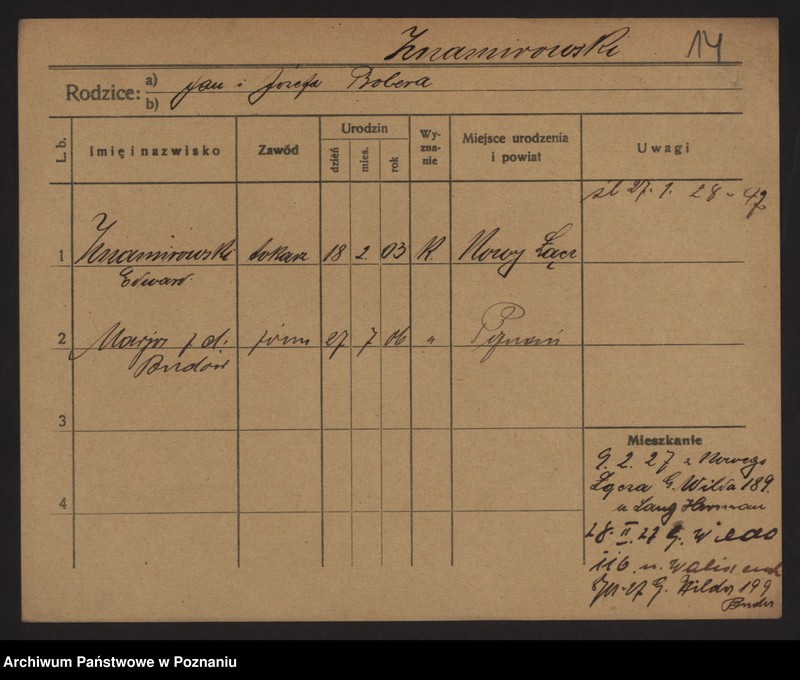 Znamirowski 14
Rodzice: a) Jan i Józefa Bobera
b)
L. b.
Imię i nazwisko
Zawód
Urodzin
dzień
mies.
rok
Wy-
zna-
nie
Miejsce urodzenia
i powiat
Uwagi
śl 27. 1. 28
1 Znamirowski tokarz 18 2 03 R. Nowy Sącz
Edward
2 Marja ż d. 27 7 06 " Poznań
3
4
Mieszkanie
9. 2. 27 z Nowego
Sącza G. Wilda 189
u Lang Herman
28. II. 27 G. W
116. u.
27 G. Wilda 199
Archiwum Państwowe w Poznaniu